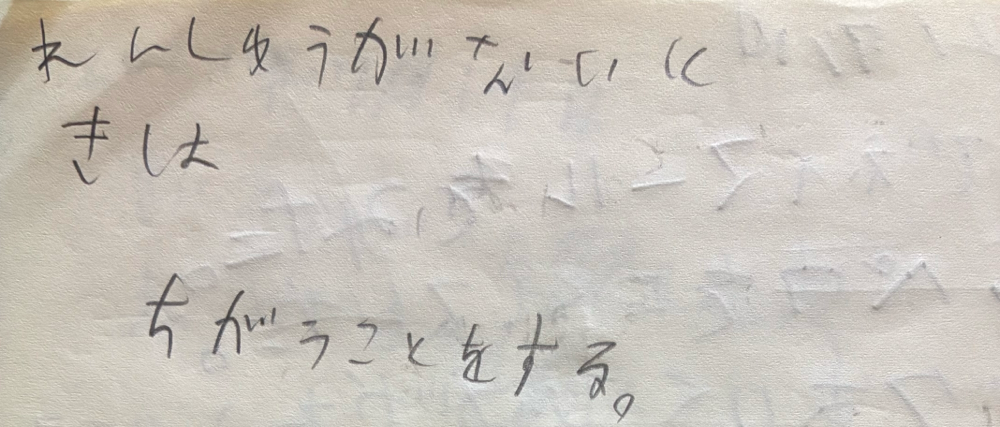 れんしゅうがないに
きは
ちがうことをする。